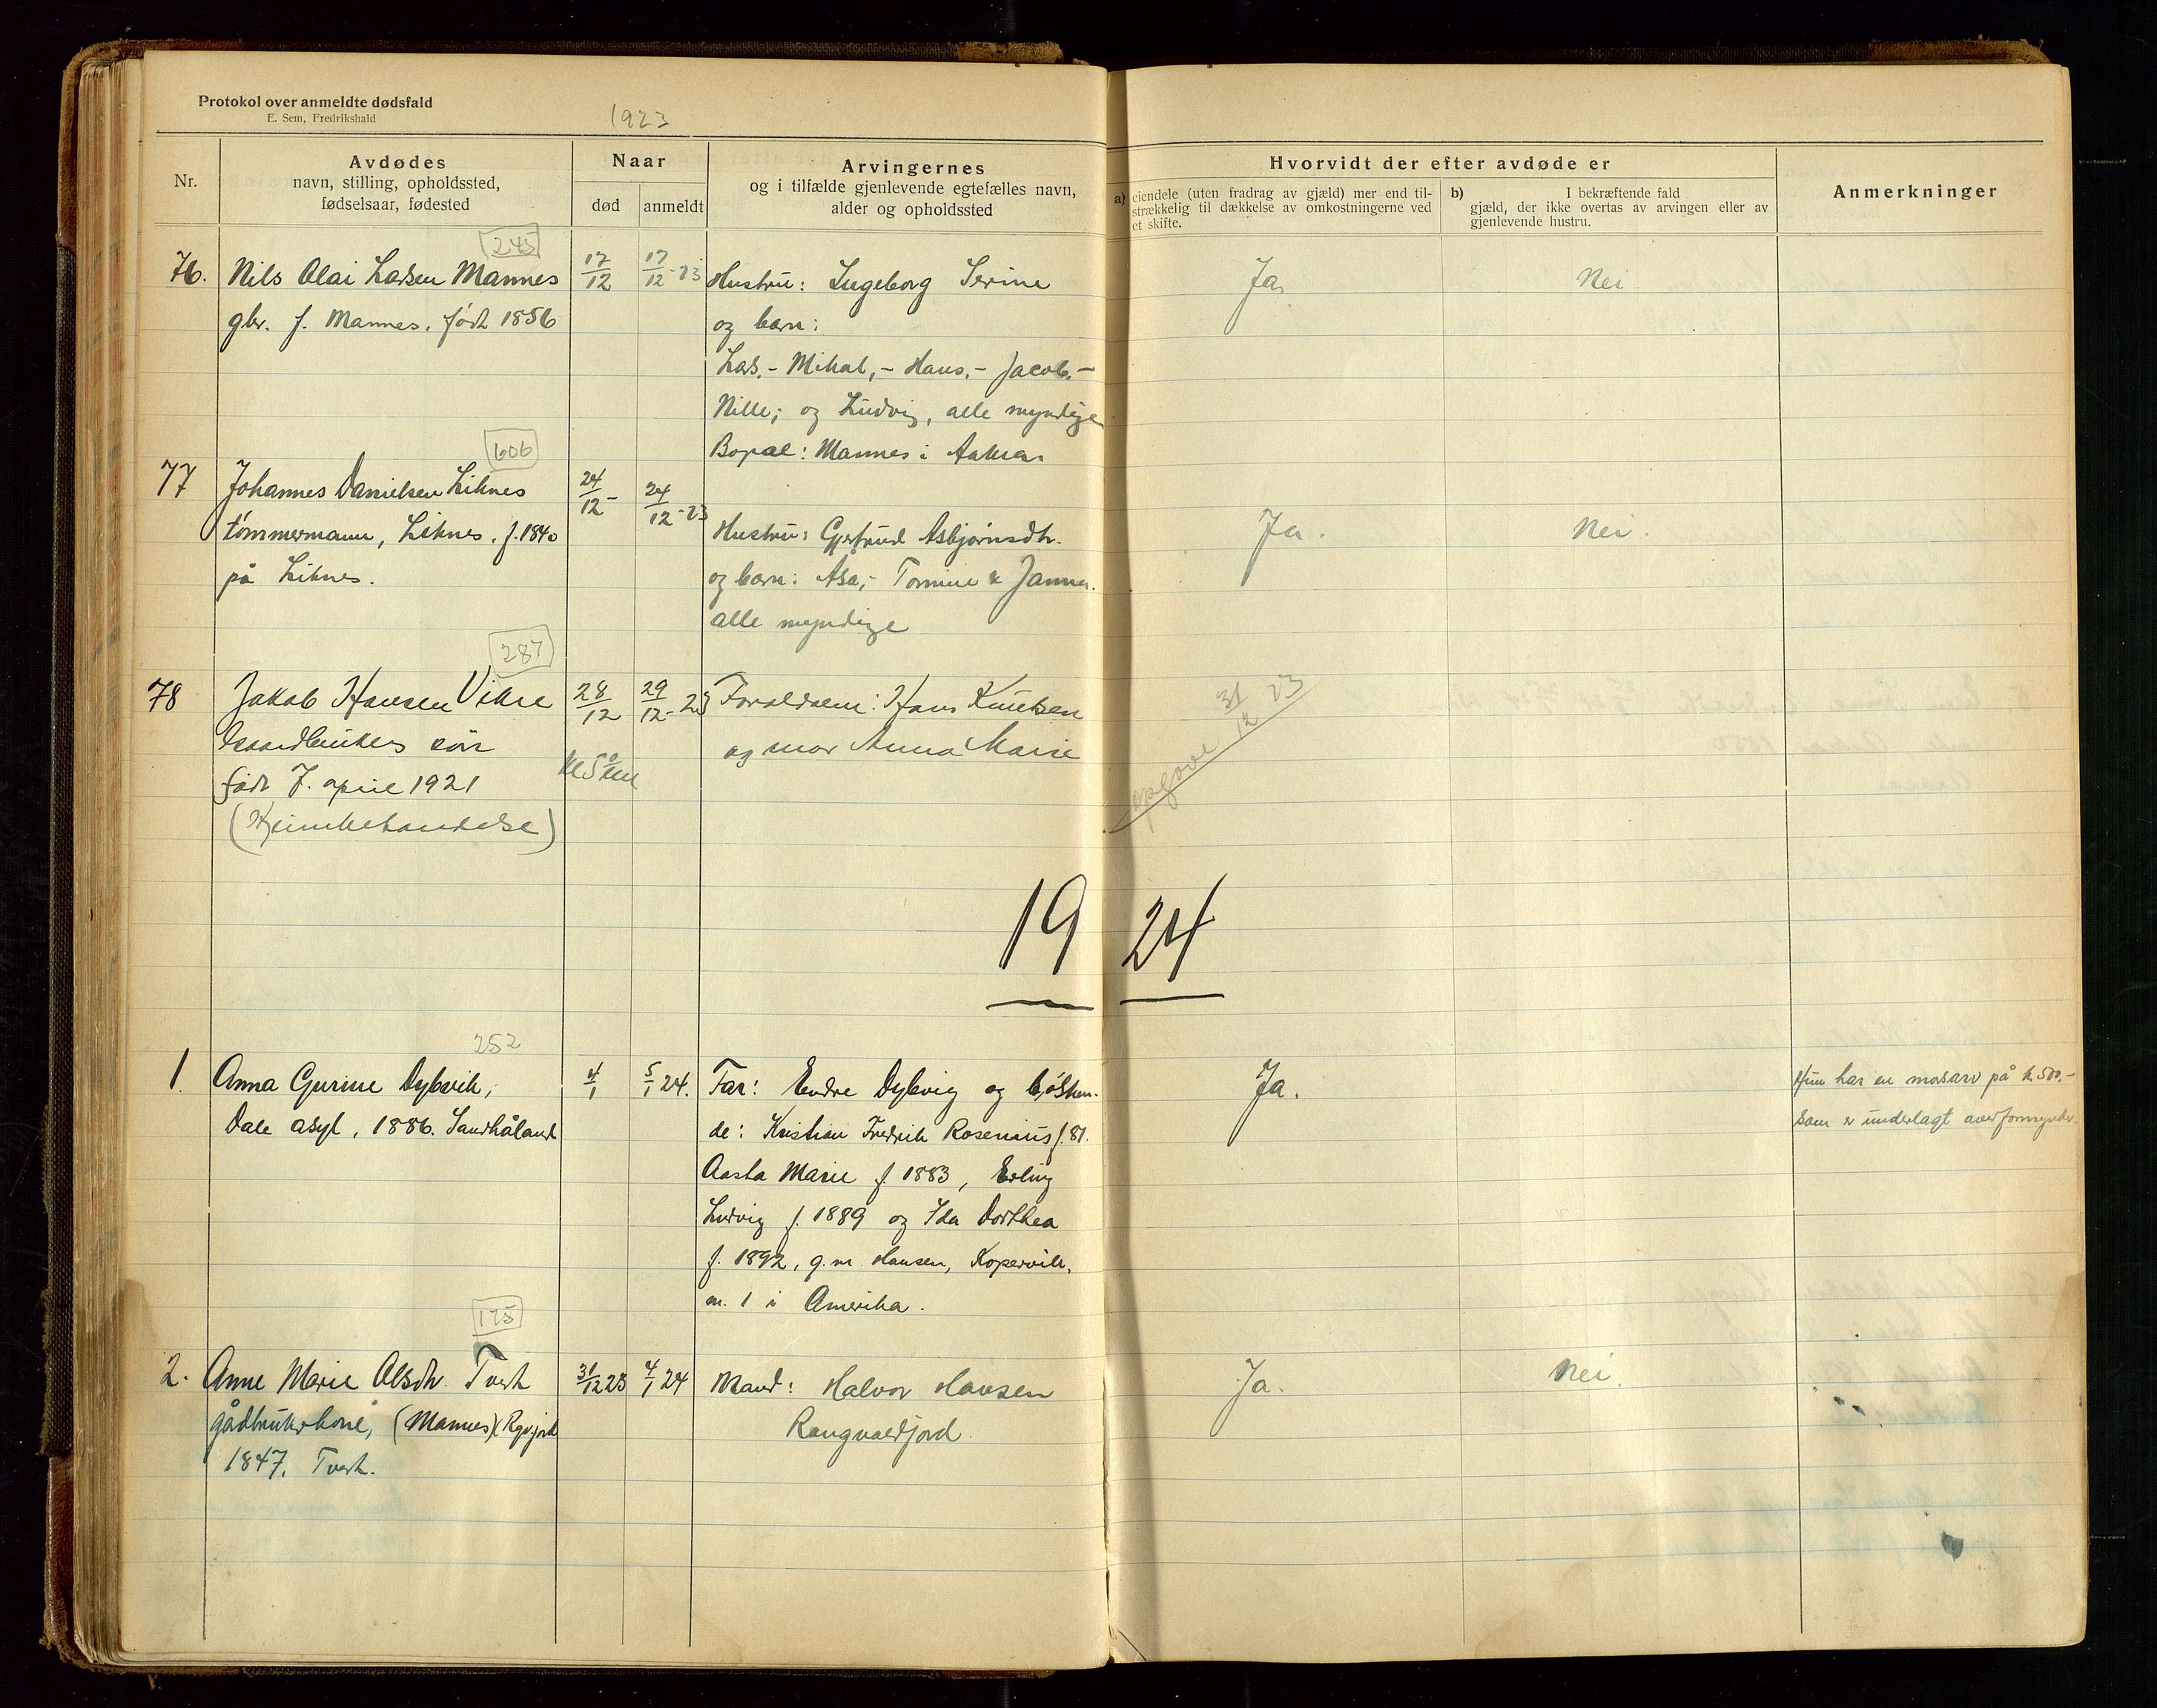 Protokol over anmeldte dødsfald
E. Sem, Fredrikshald
1923
Nr.
Avdødes
navn, stilling, opholdssted,
fødselsaar, fødested
Naar
død
anmeldt
Arvingernes
og i tilfælde gjenlevende egtefælles navn,
alder og opholdssted
Hvorvidt der efter avdøde er
a) eiendele (uten fradrag av gjæld) mer end til-
strækkelig til dækkelse av omkostningerne ved
et skifte.
b) I bekræftende fald
gjæld, der ikke overtas av arvingen eller av
gjenlevende hustru.
Anmerkninger
245
76. Nils Olai Larsen Mannes
gbr. f. Mannes. født 1856
17/12
17/12-23
Hustru: Ingeborg Serine
og barn:
Lars,- Mikal,- Hans,- Jacob,-
Nille; og Ludvig, alle myndige
Bopæl: Mannes i Aakra
Ja
Nei.
606
77 Johannes Danielsen Liknes
tømmermann, Liknes. f. 1840
på Liknes.
24/12-
24/12-23
Hustru: Gjertrud Asbjørnsdtr.
og barn: Asa,- Tomine & Janna.
alle myndige
Ja.
Nei.
287
78 Jakob Hansen Vikre
Gaardbrukers søn
født 7. april 1921
28/12
29/12-23
Forældrene: Hans Knutsen
og mor Anna Marie
opgave 31/12 23
1924
252
1. Anna Gurine Dybvik,
Dale asyl, 1886. Sandhåland
4/1
5/1 24.
Far: Endre Dybvig og søsken-
de: Kristian Fredrik Rosenius f. 81.
Aasta Marie f. 1883, Erling
Ludvig f. 1889 og Ida Dorthea
f. 1892, g.m. Hansen, Kopervik,
m. 1 i Amerika.
Ja.
Hun har en morsarv på k. 500,-
som er underlagt overformynder.
175
2. Anne Marie Olsdtr. Tveit
gådbrukerkone, (Mannes)
1847. Tveit.
31/12 23
4/1 24
Mand: Halvor Hansen
Rangvaldjord.
Ja.
Nei.